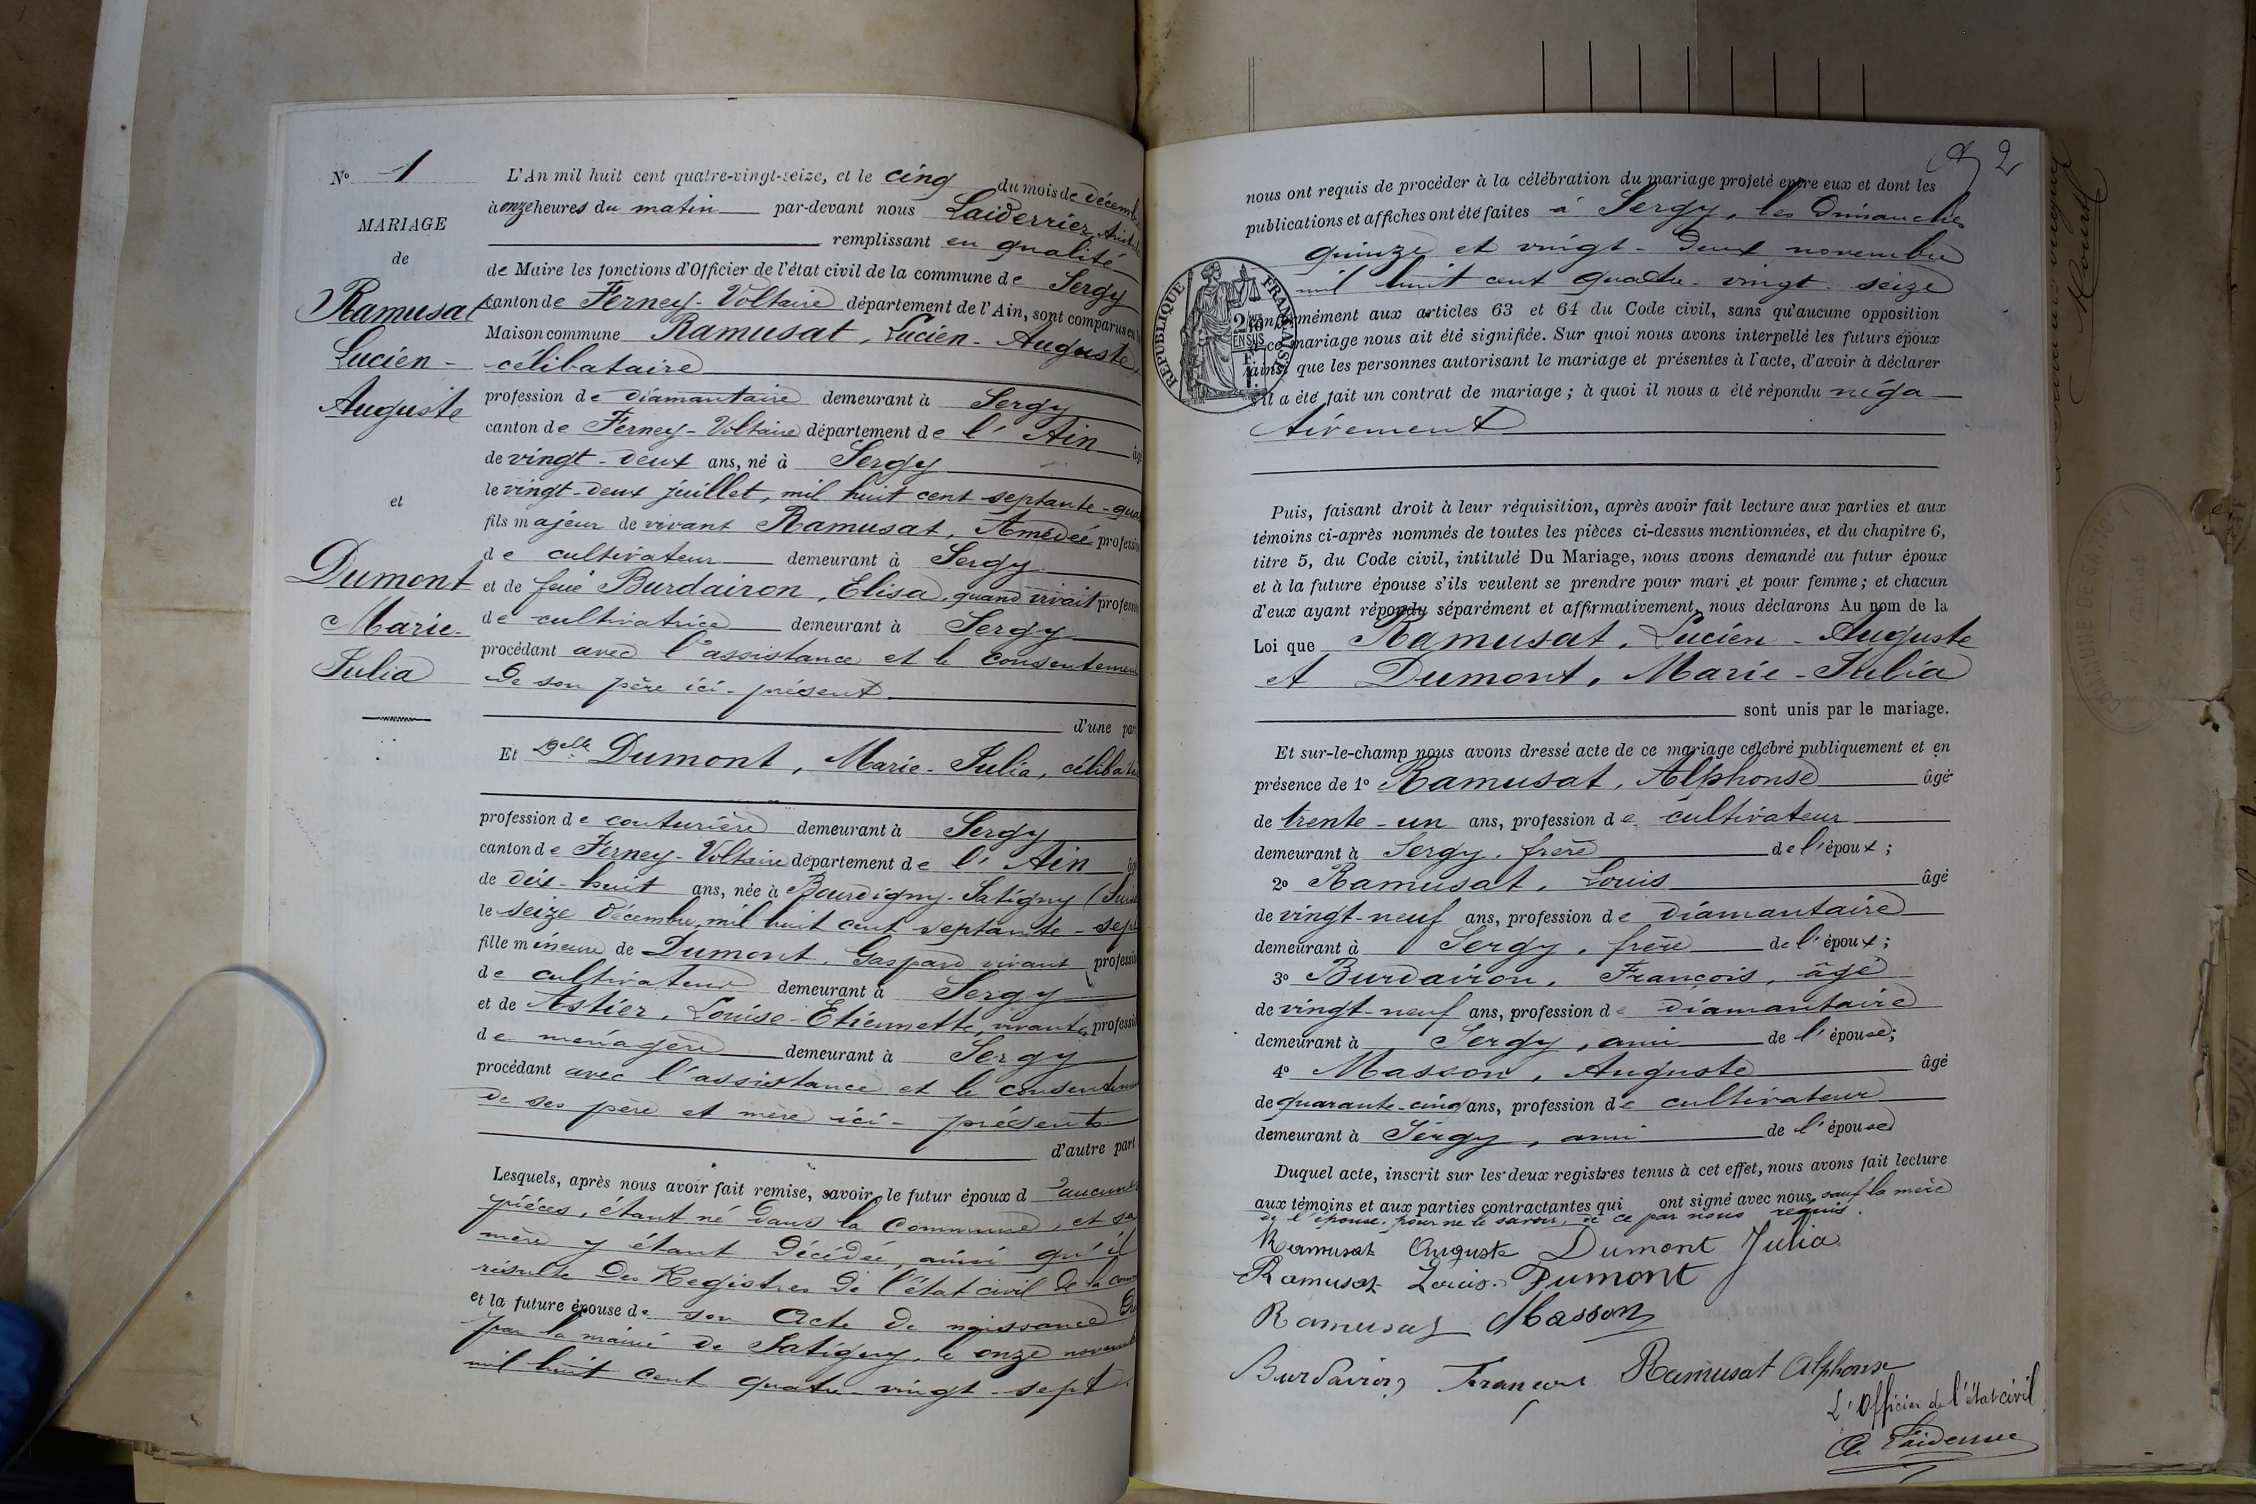 Nº 1
MARIAGE
de
Ramusat
Lucien-
Auguste
et
Dumont
Marie-
Julia
L'An mil huit cent quatre-vingt-seize, et le cinq du mois de décemb
à onze heures du matin par-devant nous Laiderrier,
remplissant en qualité
de Maire les fonctions d'Officier de l'état civil de la commune de Sergy
canton de Ferney-Voltaire département de l'Ain, sont comparus en
Maison commune Ramusat, Lucien-Auguste,
célibataire
profession de diamantaire demeurant à Sergy
canton de Ferney-Voltaire département de l'Ain âgé
de vingt-deux ans, né à Sergy
le vingt-deux juillet, mil huit cent septante-qua
fils majeur de vivant Ramusat, Amédée profession
de cultivateur demeurant à Sergy
et de feue Burdairon, Elisa, quand vivait profession
de cultivatrice demeurant à Sergy
procédant avec l'assistance et le consentement
de son père ici-présent
d'une par
Et Delle Dumont, Marie-Julia, céliba
profession de couturière demeurant à Sergy
canton de Ferney-Voltaire département de l'Ain âg
de dix-huit ans, née à Bourdigny-Satigny (Suis
le seize décembre, mil huit cent septante-sept
fille mineure de Dumont, Gaspard vivant professio
de cultivateur demeurant à Sergy
et de Astier, Louise-Etiennette, vivante, professio
de ménagère demeurant à Sergy
procédant avec l'assistance et le consentem
de ses père et mère ici-présents
d'autre part
Lesquels, après nous avoir fait remise, savoir, le futur époux d'aucunes
pièces, étant né dans la commune, et sa
mère y étant décédée, ainsi qu'il
résulte des Registres de l'état civil de la com
et la future épouse de son acte de naissance
par la mairie de Satigny, le onze novemb
mil huit cent quatre-vingt-sept
2
nous ont requis de procéder à la célébration du mariage projeté entre eux et dont les
publications et affiches ont été faites à Sergy, les dimanches
quinze et vingt-deux novembre
mil huit cent quatre-vingt-seize
conformément aux articles 63 et 64 du Code civil, sans qu'aucune opposition
à ce mariage nous ait été signifiée. Sur quoi nous avons interpellé les futurs époux
ainsi que les personnes autorisant le mariage et présentes à l'acte, d'avoir à déclarer
s'il a été fait un contrat de mariage; à quoi il nous a été répondu néga
tivement
RÉPUBLIQUE FRANÇAISE
Puis, faisant droit à leur réquisition, après avoir fait lecture aux parties et aux
témoins ci-après nommés de toutes les pièces ci-dessus mentionnées, et du chapitre 6,
titre 5, du Code civil, intitulé Du Mariage, nous avons demandé au futur époux
et à la future épouse s'ils veulent se prendre pour mari et pour femme; et chacun
d'eux ayant répondu séparément et affirmativement, nous déclarons Au nom de la
Loi que Ramusat, Lucien-Auguste
et Dumont, Marie-Julia
sont unis par le mariage.
Et sur-le-champ nous avons dressé acte de ce mariage célébré publiquement et en
présence de 1º Ramusat, Alphonse âgé
de trente-un ans, profession de cultivateur
demeurant à Sergy, frère de l'époux;
2º Ramusat, Louis âgé
de vingt-neuf ans, profession de diamantaire
demeurant à Sergy, frère de l'époux;
3º Burdairon, François, âgé
de vingt-neuf ans, profession de diamantaire
demeurant à Sergy, ami de l'épouse;
4º Masson, Auguste âgé
de quarante-cinq ans, profession de cultivateur
demeurant à Sergy, ami de l'épouse
Duquel acte, inscrit sur les deux registres tenus à cet effet, nous avons fait lecture
aux témoins et aux parties contractantes qui ont signé avec nous, sauf la mère
de l'épouse, pour ne le savoir, de ce par nous requis.
Ramusat Auguste Dumont Julia
Ramusat Louis. Dumont
Ramusat Masson
Burdairon François Ramusat Alphonse
L'Officier de l'état civil